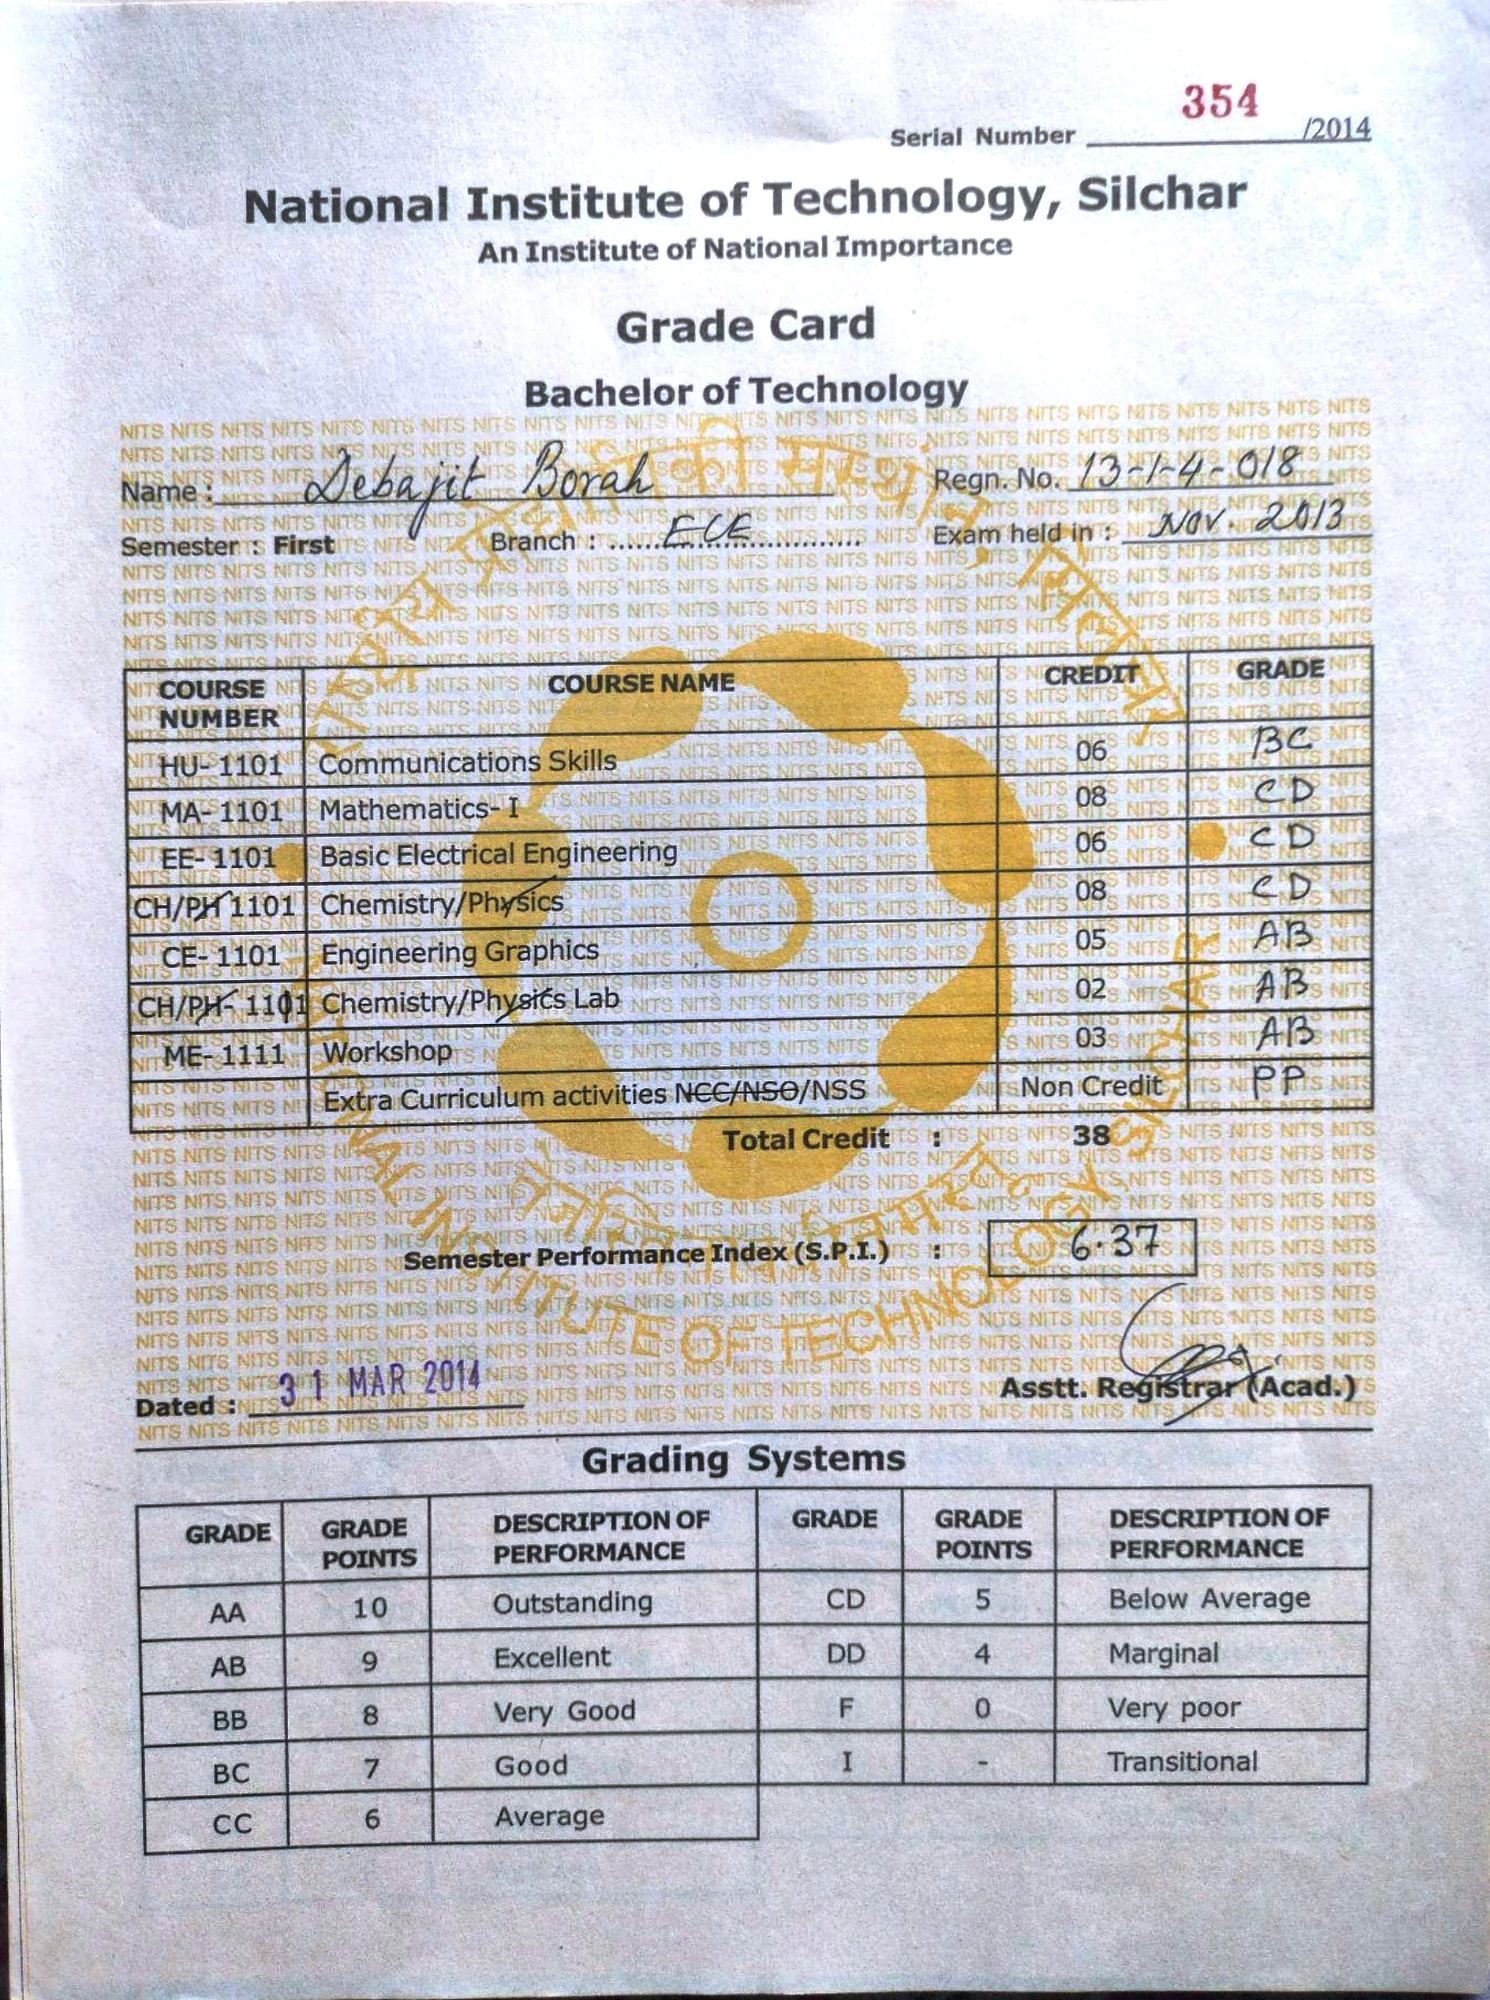 354
Serial Number /2014
National Institute of Technology, Silchar
An Institute of National Importance
Grade Card
Bachelor of Technology
Name : Debajit Borah Regn. No. 13-1-4-018
Semester : First Branch : ECE Exam held in : Nov. 2013
COURSE NUMBER COURSE NAME CREDIT GRADE
HU- 1101 Communications Skills 06 BC
MA- 1101 Mathematics- I 08 CD
EE- 1101 Basic Electrical Engineering 06 CD
CH/PH 1101 Chemistry/Physics 08 CD
CE- 1101 Engineering Graphics 05 AB
CH/PH- 1101 Chemistry/Physics Lab 02 AB
ME- 1111 Workshop 03 AB
Extra Curriculum activities NCC/NSO/NSS Non Credit PP
Total Credit : 38
Semester Performance Index (S.P.I.) : 6.37
NATIONAL INSTITUTE OF TECHNOLOGY, SILCHAR
Dated : 31 MAR 2014 Asstt. Registrar (Acad.)
Grading Systems
GRADE GRADE POINTS DESCRIPTION OF PERFORMANCE GRADE GRADE POINTS DESCRIPTION OF PERFORMANCE
AA 10 Outstanding CD 5 Below Average
AB 9 Excellent DD 4 Marginal
BB 8 Very Good F 0 Very poor
BC 7 Good I - Transitional
CC 6 Average